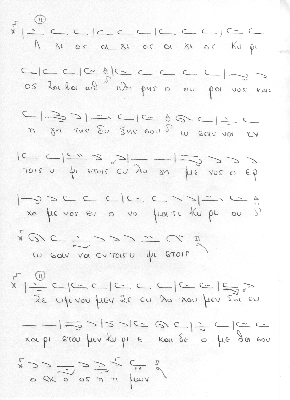 Α γι ος α γι ος α γι ος Κυ ρι
ος Σα βα ωθ πλη ρης ο ου ρα νος και
η γη της δο ξης σου ω σαν να εν
τοις υ ψι στοις ευ λο γη με νος ο ερ
χο με νος εν ο νο μα τι Κυ ρι ου
ω σαν να εν τοις υ ψι στοις
Σε υ μνου μεν Σε ευ λο γου μεν Σοι ευ
χα ρι στου μεν Κυ ρι ε και δε ο με θα σου
ο Θε ο ος η η μων